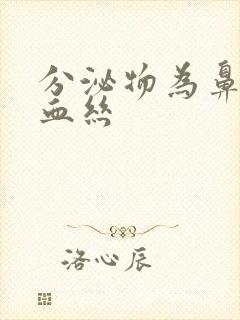 分泌物為鼻
血絲
洛心辰